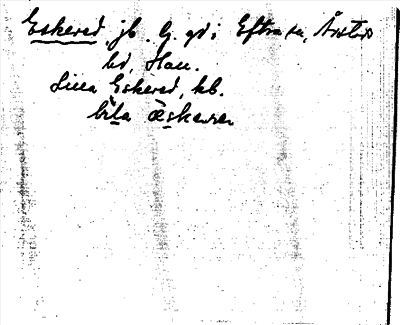 Eskered jb. g. gd i Eftra sn, Årstads
hd, Hall.
Lilla Eskered, hb.
lit̲la æskərə